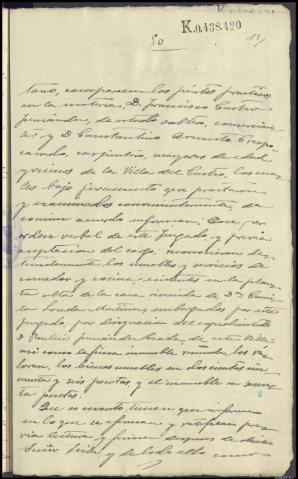 K.0.438.420
50
tario, comparecen los peritos prácticos
en la materia, D. Francisco Castro
Fernández, de estado soltero, comercian
te y D Constantino Armesto Crespo
casado, carpintero, mayores de edad
y vecinos de la Villa del Castro, los cua
les bajo juramento que prestaron
y examinados convenientemente, de
común acuerdo informan: Que, por
orden verbal de este Juzgado y previa
aceptación del cargo, reconocieron de
los muebles y servicios de
comedor y cocina, existentes en la planta
alta de la casa vivienda de Dª
Losada Martínez, embargados por este
Juzgado, por designación del expedientado
D Fernández Losada, de esta Villa
así como la finca inmueble los va
loran, los bienes muebles en doscientos cin
cuenta y seis pesetas y el inmueble en
pesetas.
Que es cuanto tienen que informar
en lo que se afirman y ratifican pre
via lectura y firman después de dicho
Señor Juez, y de todo ello como